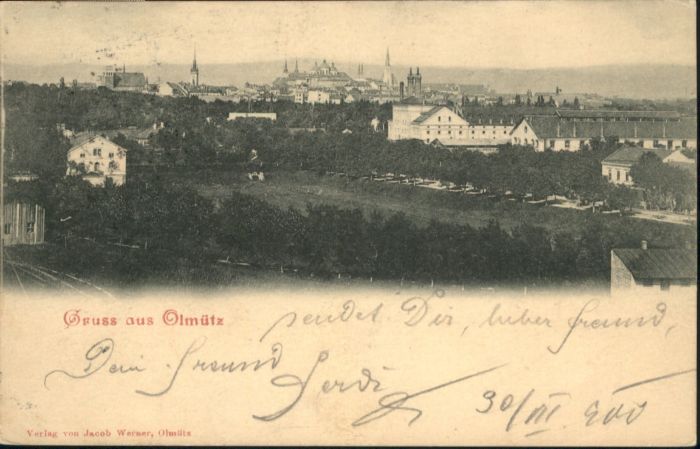 Gruss aus Olmütz
sendet Dir, lieber Freund,
Dein Freund Ferdi
30/III 900
Verlag von Jacob Werner, Olmütz